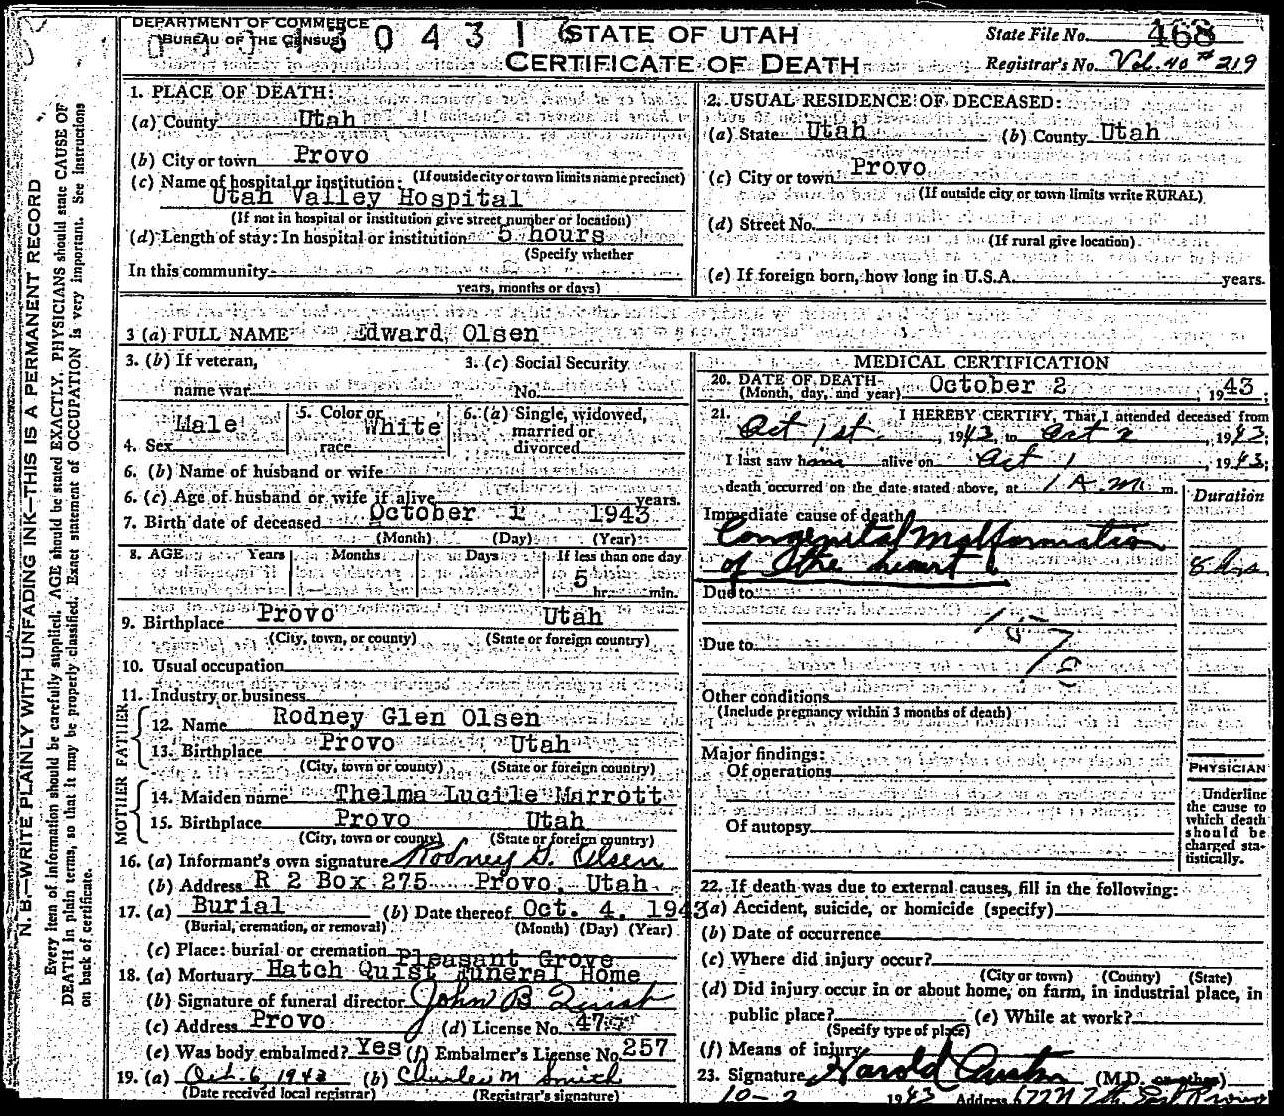 DEPARTMENT OF COMMERCE
BUREAU OF THE CENSUS
STATE OF UTAH
CERTIFICATE OF DEATH
State File No. 468
Registrar's No. Vol. 40 # 219
N. B.—WRITE PLAINLY WITH UNFADING INK—THIS IS A PERMANENT RECORD
Every item of information should be carefully supplied. AGE should be stated EXACTLY. PHYSICIANS should state CAUSE OF
DEATH in plain terms, so that it may be properly classified. Exact statement of OCCUPATION is very important. See instructions
on back of certificate.
1. PLACE OF DEATH:
(a) County Utah
(b) City or town Provo
(If outside city or town limits name precinct)
(c) Name of hospital or institution:
Utah Valley Hospital
(If not in hospital or institution give street number or location)
(d) Length of stay: In hospital or institution 5 hours
(Specify whether
In this community
years, months or days)
2. USUAL RESIDENCE OF DECEASED:
(a) State Utah (b) County Utah
(c) City or town Provo
(If outside city or town limits write RURAL)
(d) Street No.
(If rural give location)
(e) If foreign born, how long in U.S.A. years.
3 (a) FULL NAME Edward Olsen
3. (b) If veteran,
name war
3. (c) Social Security
No.
4. Sex Male
5. Color or
race White
6. (a) Single, widowed,
married or
divorced
6. (b) Name of husband or wife
6. (c) Age of husband or wife if alive years.
7. Birth date of deceased October 1 1943
(Month) (Day) (Year)
8. AGE Years Months Days If less than one day
5 hr. min.
9. Birthplace Provo Utah
(City, town, or county) (State or foreign country)
10. Usual occupation
11. Industry or business
FATHER
12. Name Rodney Glen Olsen
13. Birthplace Provo Utah
(City, town or county) (State or foreign country)
MOTHER
14. Maiden name Thelma Lucile Marrott
15. Birthplace Provo Utah
(City, town or county) (State or foreign country)
16. (a) Informant's own signature Rodney G. Olsen
(b) Address R 2 Box 275 Provo, Utah
17. (a) Burial (b) Date thereof Oct. 4, 1943
(Burial, cremation, or removal) (Month) (Day) (Year)
(c) Place: burial or cremation Pleasant Grove
18. (a) Mortuary Hatch Quist Funeral Home
(b) Signature of funeral director John B Quist
(c) Address Provo (d) License No.
(e) Was body embalmed? Yes (f) Embalmer's License No. 257
19. (a) Oct. 6, 1943 (b) Charles M Smith
(Date received local registrar) (Registrar's signature)
MEDICAL CERTIFICATION
20. DATE OF DEATH
(Month, day, and year) October 2, 1943;
21. I HEREBY CERTIFY, That I attended deceased from
Oct 1st, 1943 to Oct 2, 1943;
I last saw h alive on Oct 1, 1943;
death occurred on the date stated above, at 1 A.M. m.
Duration
Immediate cause of death
Congenital Malformation
of the heart
8 hrs
Due to
Due to
157
Other conditions
(Include pregnancy within 3 months of death)
Major findings:
Of operations
Of autopsy
PHYSICIAN
Underline
the cause to
which death
should be
charged sta-
tistically.
22. If death was due to external causes, fill in the following:
(a) Accident, suicide, or homicide (specify)
(b) Date of occurrence
(c) Where did injury occur?
(City or town) (County) (State)
(d) Did injury occur in or about home, on farm, in industrial place, in
public place? (e) While at work?
(Specify type of place)
(f) Means of injury
23. Signature Harold Austin (M.D. or other)
10-2 1943 Address Provo